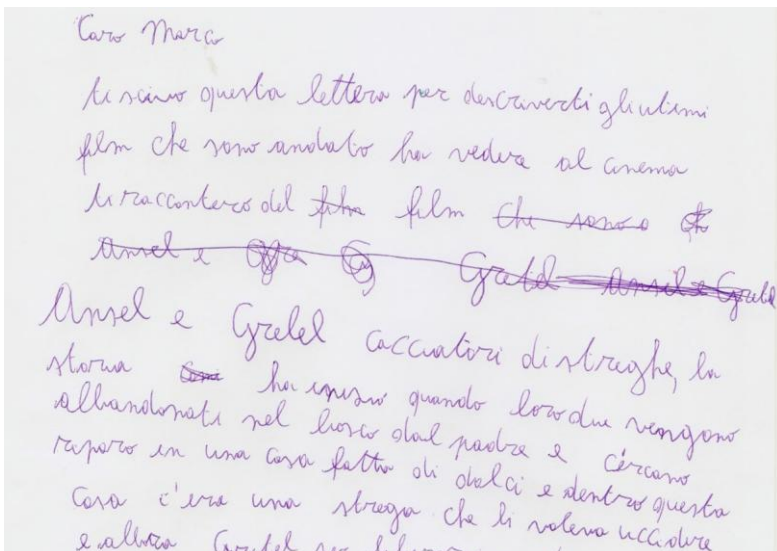 Caro Marco
ti scrivo questa lettera per descriverti gli ultimi
film che sono andato ha vedere al cinema
ti racconterò del film film che sono
Ansel e Gretel Ansel e Gretel
Ansel e Gretel cacciatori di streghe, la
storia ha inizio quando loro due vengono
abbandonati nel bosco dal padre e cercano
riparo in una casa fatta di dolci e dentro questa
casa c'era una strega che li voleva uccidere
e allora Gretel per